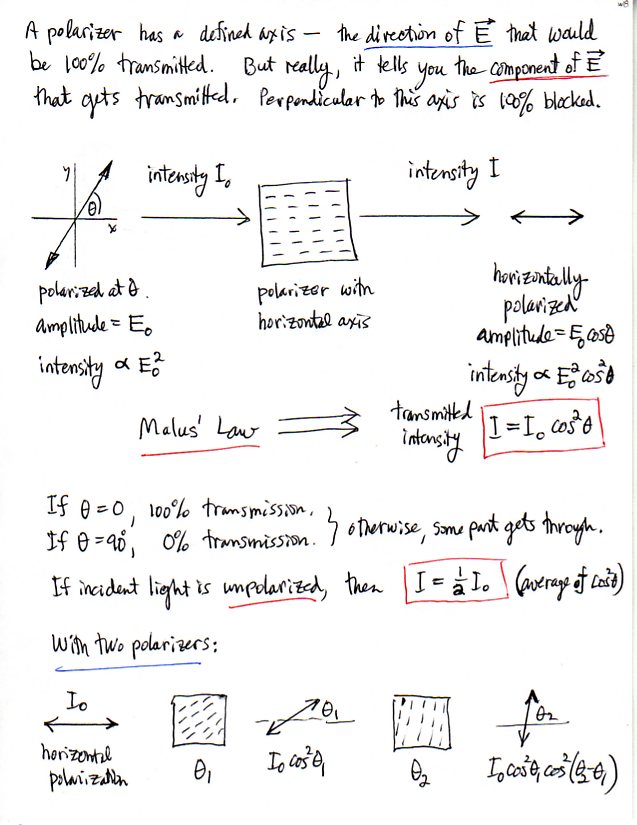 A polarizer has a defined axis — the direction of E⃗ that would
be 100% transmitted. But really, it tells you the component of E⃗
that gets transmitted. Perpendicular to this axis is 100% blocked.
y
θ
x
intensity I₀
intensity I
polarized at θ.
amplitude = E₀
intensity ∝ E₀²
polarizer with
horizontal axis
horizontally
polarized
amplitude = E₀cosθ
intensity ∝ E₀²cos²θ
Malus' Law
transmitted
intensity
I = I₀ cos²θ
If θ = 0, 100% transmission.
If θ = 90°, 0% transmission.
} otherwise, some part gets through.
If incident light is unpolarized, then I = ½ I₀ (average of cos²θ)
With two polarizers:
I₀
horizontal
polarization
θ₁
θ₁
I₀cos²θ₁
θ₂
θ₂
I₀cos²θ₁cos²(θ₂-θ₁)